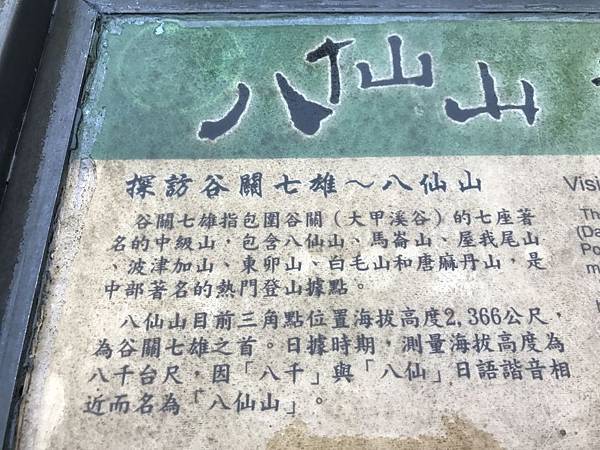 八仙山
探訪谷關七雄～八仙山
谷關七雄指包圍谷關（大甲溪谷）的七座著
名的中級山，包含八仙山、馬崙山、屋我尾山
、波津加山、東卯山、白毛山和唐麻丹山，是
中部著名的熱門登山據點。
八仙山目前三角點位置海拔高度2,366公尺，
為谷關七雄之首。日據時期，測量海拔高度為
八千台尺，因「八千」與「八仙」日語諧音相
近而名為「八仙山」。
Visi
Th
(Da
Po
m